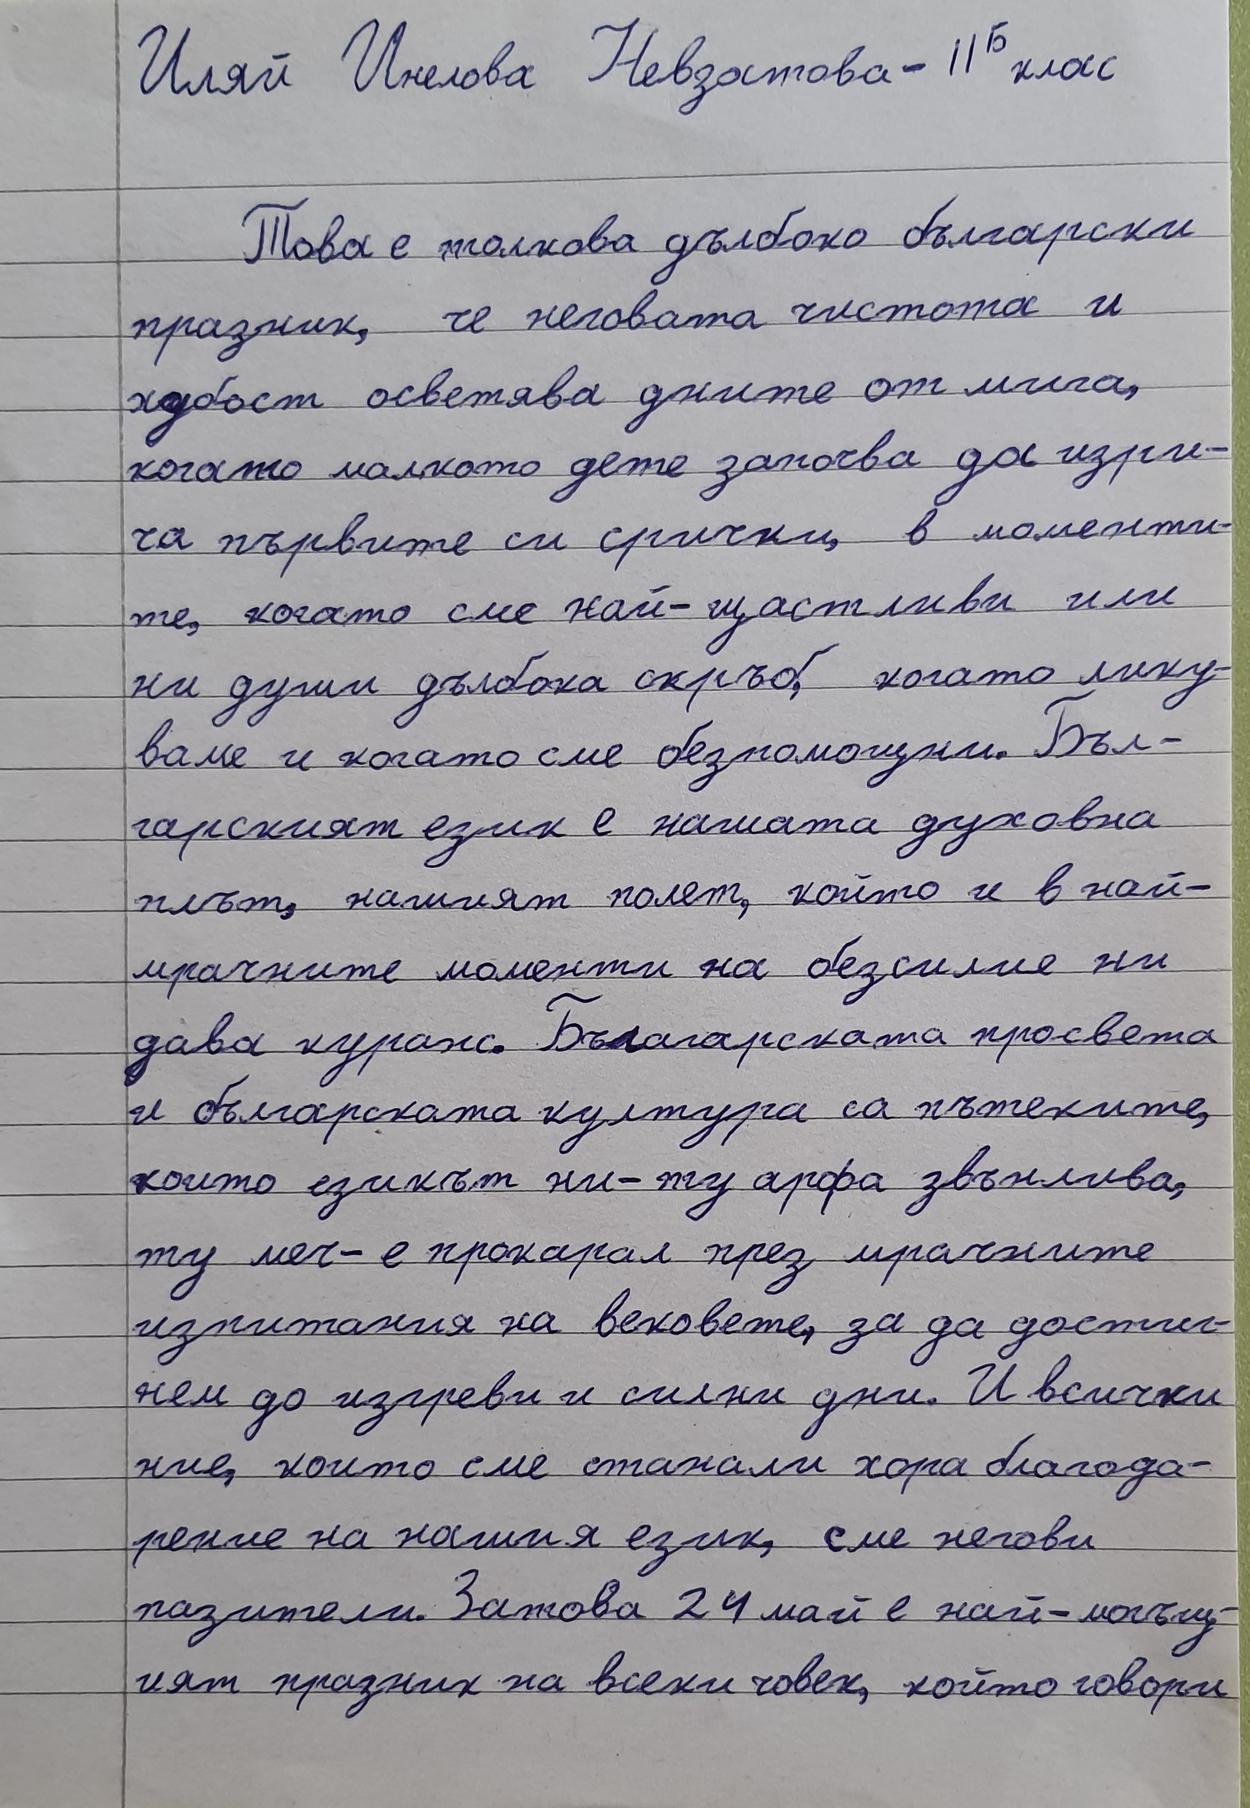 Иляй Инелова Невзатова - 11Б клас
Това е толкова дълбоко български
празник, че неговата чистота и
храброст осветява дните от мига,
когато малкото дете започва да изри-
ча първите си срички, в моменти-
те, когато сме най-щастливи или
ни души дълбока скръб, когато лику-
ваме и когато сме безпомощни. Бъл-
гарският език е нашата духовна
плът, нашият полет, който и в най-
мрачните моменти на безсилие ни
дава кураж. Бълагарската просвета
и българската култура са пътеките,
които езикът ни - ту арфа звънлива,
ту меч - е прокарал през мрачните
изпитания на вековете, за да достиг-
нем до изгреви и силни дни. И всички
ние, които сме станали хора благода-
рение на нашия език, сме негови
пазители. Затова 24 май е най-могъщ-
ият празник на всеки човек, който говори